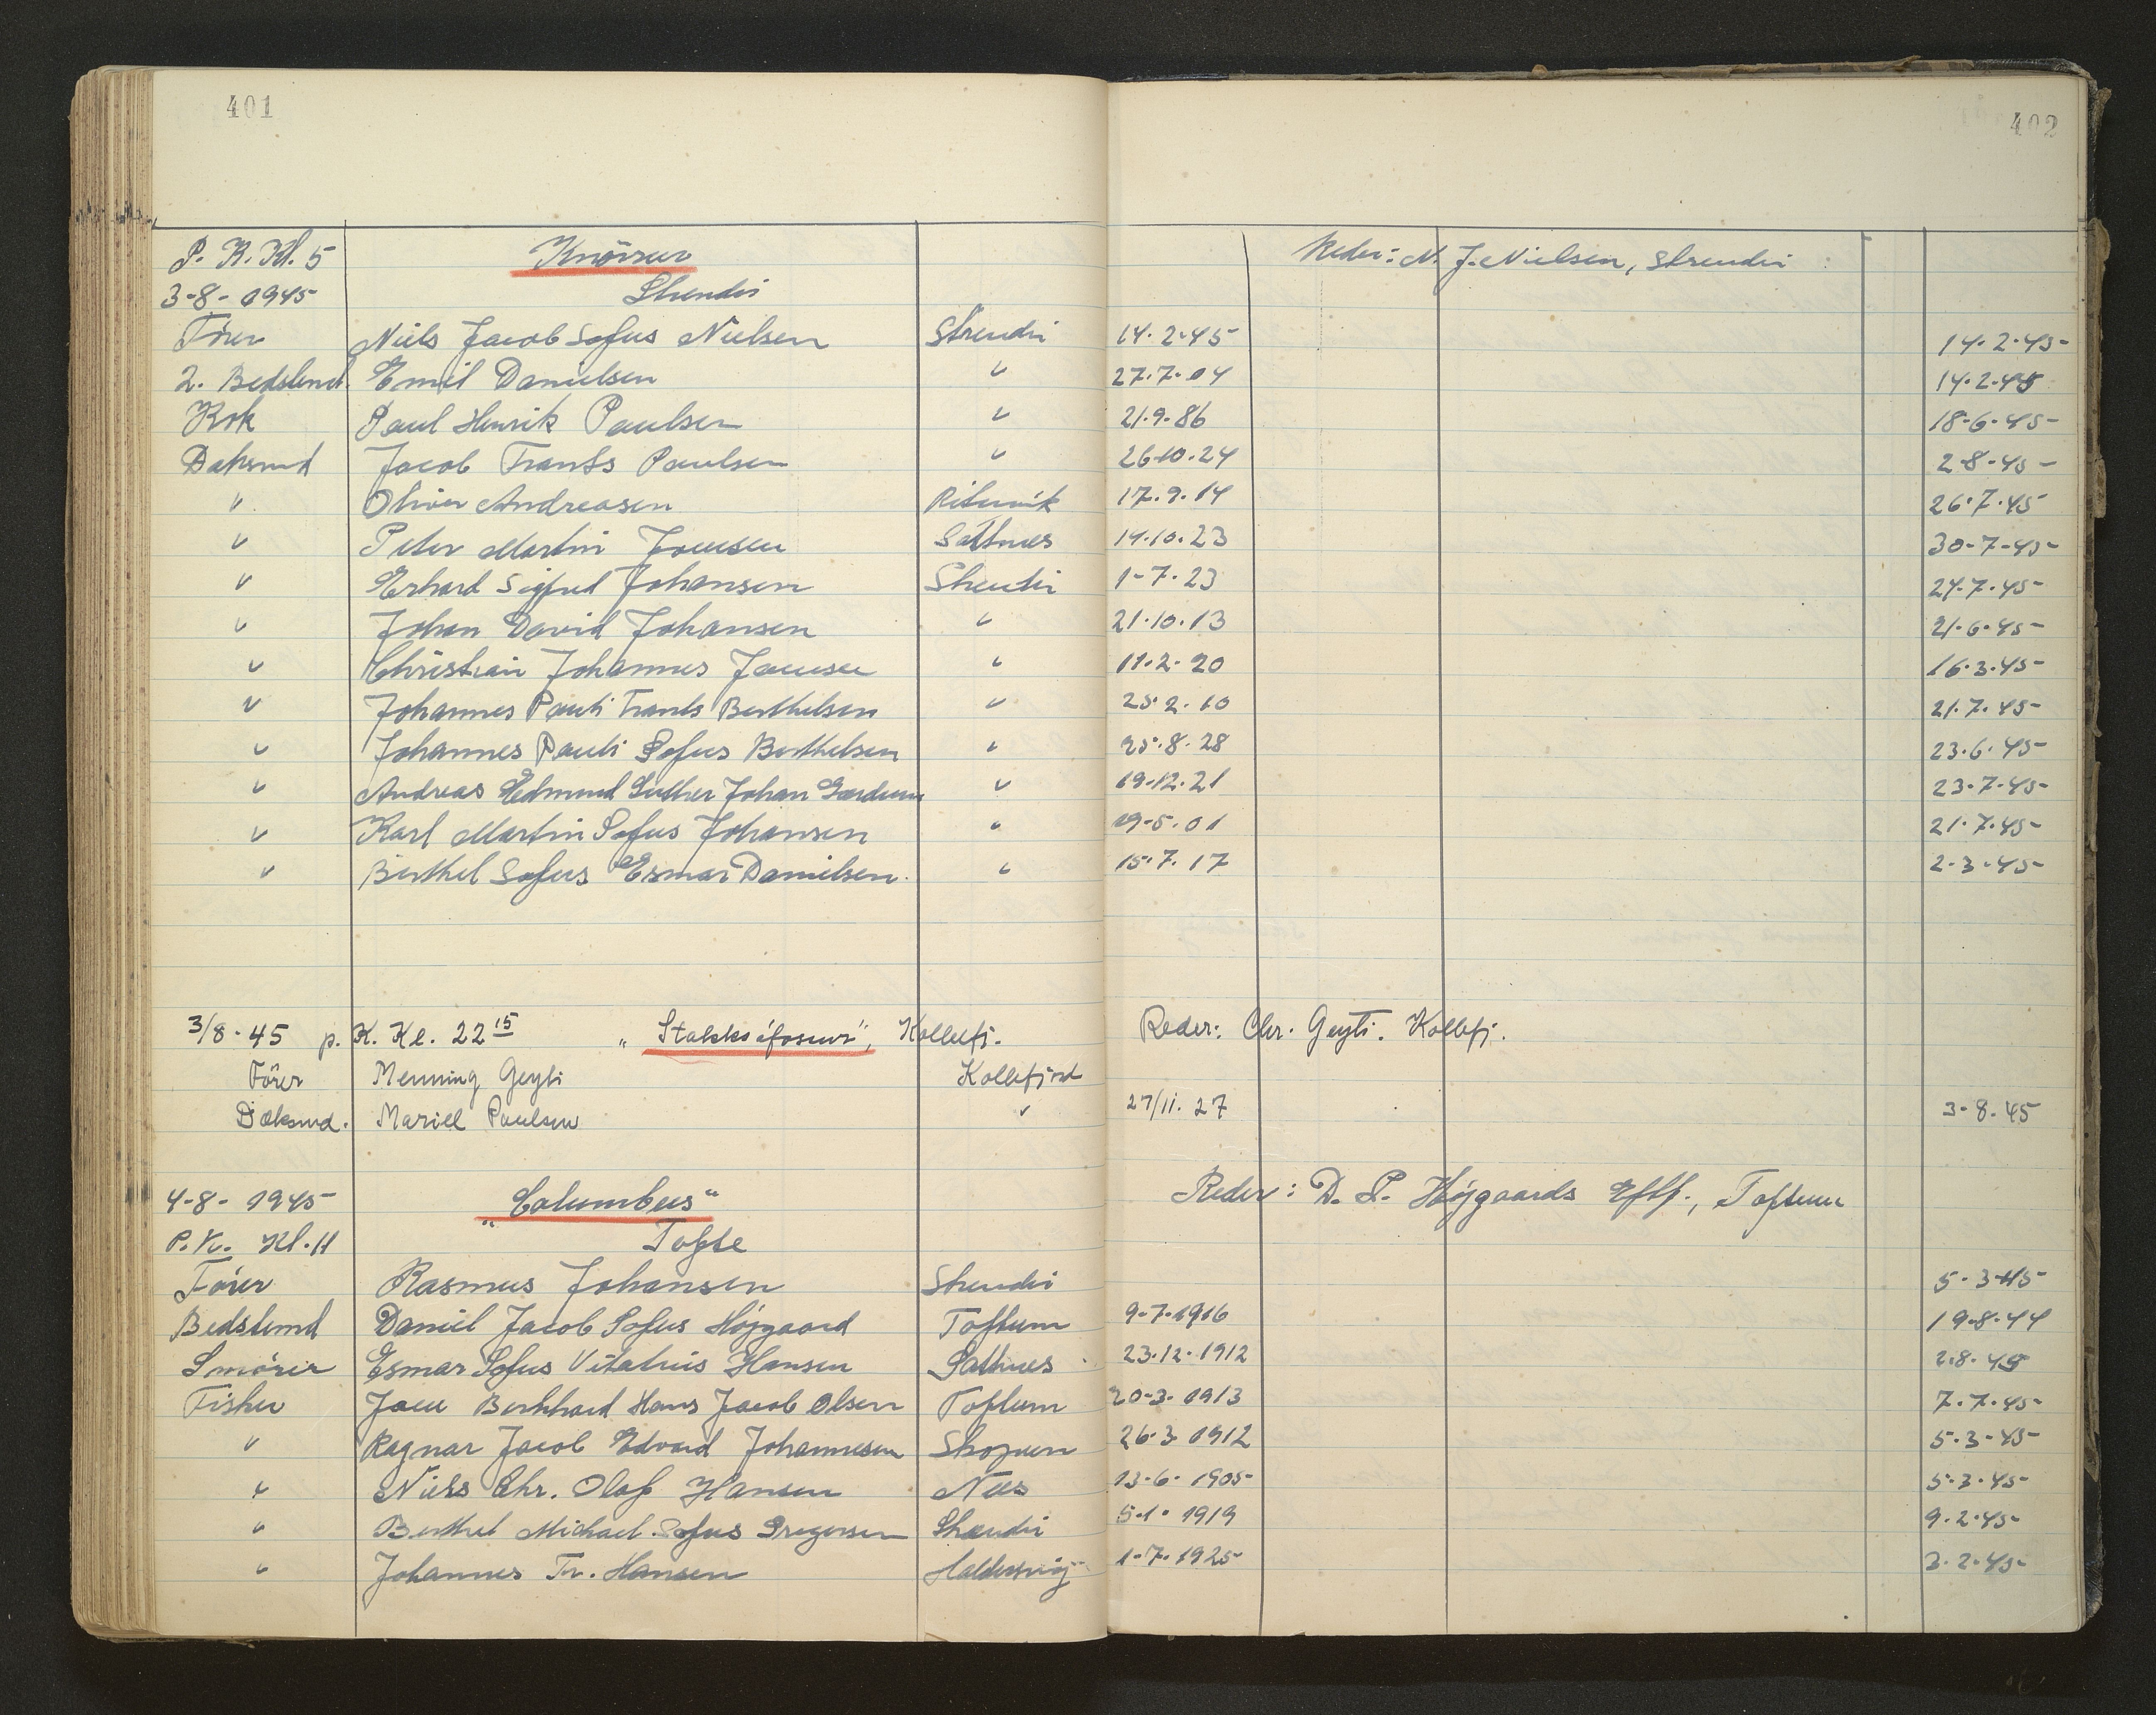 401
402
P. K. Kl. 5 Knörrur Reder: N. J. Nielsen, Strendri
3-8-1945 Strendri
Förer Niels Jacob Sofus Nielsen Strendri 14.2.45 14.2.45
2. Bedstemd. Emil Danielsen " 27.7.04 14.2.45
Kok Paul Henrik Paulsen " 21.9.86 18-6-45
Daksmd Jacob Frants Paulsen " 26-10.24 2-8-45
" Oliver Andreasen Rituvik 17.9.14 26.7.45
" Peter Martin Joensen Saltnes 14.10.23 30-7-45
" Erhard Sigfred Johansen Strendri 1-7.23 24.7.45
" Johan David Johansen " 21.10.13 21.6.45
" Christian Johannes Joensen " 11.2.20 16.3.45
" Johannes Pauli Frants Berthelsen " 25.2.10 21.7.45
" Johannes Pauli Sofus Berthelsen " 25.8.28 23.6.45
" Andreas Edmund Luther Johan " 19-12.21 23.7.45
" Karl Martin Sofus Johansen " 19-5.01 21.7.45
" Berthel Sofus Esmar Danielsen. " 15.7.17 2-3-45
3/8-45 p. K. Kl. 22 15 " ", Kollefj. Reder: Chr. Geyti. Kollefj.
Förer Menning Geyti Kollefjord
Dæksmd. Mariel Paulsen " 27/11.27 3-8.45
4-8-1945 "Columbus" Reder: D. P. Højgaards Eftf., Toftum
P.K. Kl.11 Tofte
Förer Rasmus Johansen Strendri 5-3-45
Bedstemd Daniel Jacob Sofus Højgaard Toftum 9-7-1916 19-8-44
Smörer Esmar Sofus Vitalius Hansen Saltnes 23.12.1912 2.8.45
Fisker Joen Berkhard Hans Jacob Olsen Toftum 20-3-1913 7.7.45
" Ragnar Jacob Edvard Johannesen Skopun 26.3 1912 5-3-45
" Niels Chr. Olaf Hansen Nes 13-6-1905 5.3.45
" Berthel Michael Sofus Gregersen Strendri 5-1-1919 9.2.45
" Johannes Fr. Hansen Haldersvig 1-7.1925 3.2.45